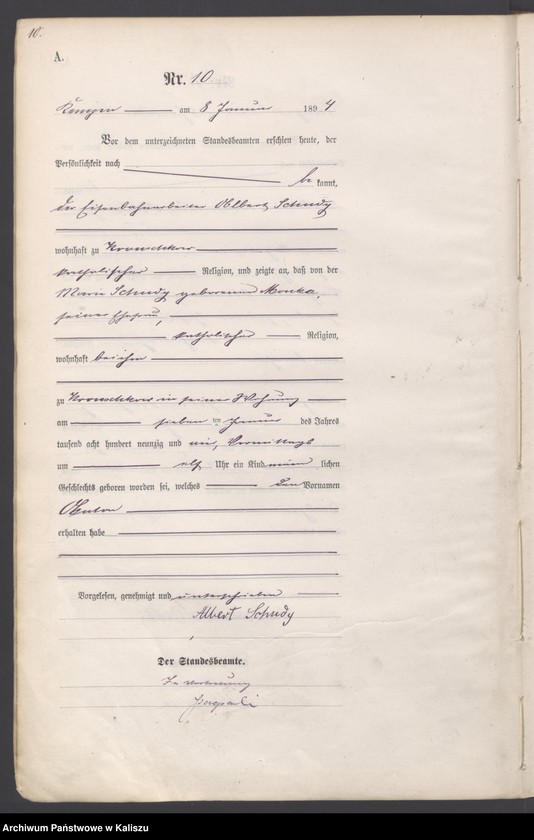 10.
A.
Nr. 10
Kempen am 8 Januar 1894
Vor dem unterzeichneten Standesbeamten erschien heute, der
Persönlichkeit nach
be kannt,
der Eisenbahnarbeiter Albert Schudy
wohnhaft zu
katholischer Religion, und zeigte an, daß von der
Marie Schudy geborenen
seiner Ehefrau,
katholischer Religion,
wohnhaft bei ihm
zu in seiner Wohnung
am sieben ten Januar des Jahres
tausend acht hundert neunzig und vier, Vormittags
um elf Uhr ein Kind männ lichen
Geschlechts geboren worden sei, welches den Vornamen
Anton
erhalten habe
Vorgelesen, genehmigt und unterschrieben
Albert Schudy
Der Standesbeamte.
In Vertretung
Archiwum Państwowe w Kaliszu